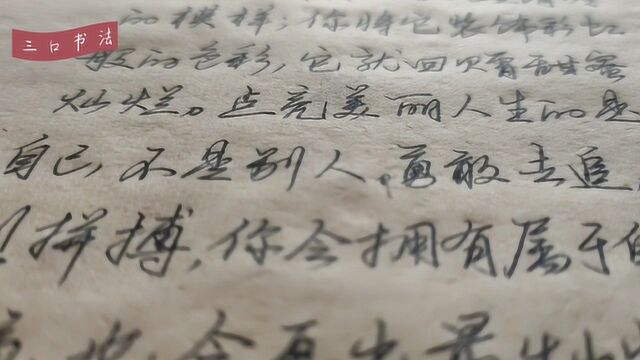 三口书法
的模样；你将它装饰彩虹
般的色彩，它就回赠甜蜜
灿烂。点亮美丽人生的是
自己，不是别人，勇敢去追
拼搏，你会拥有属于
也 会